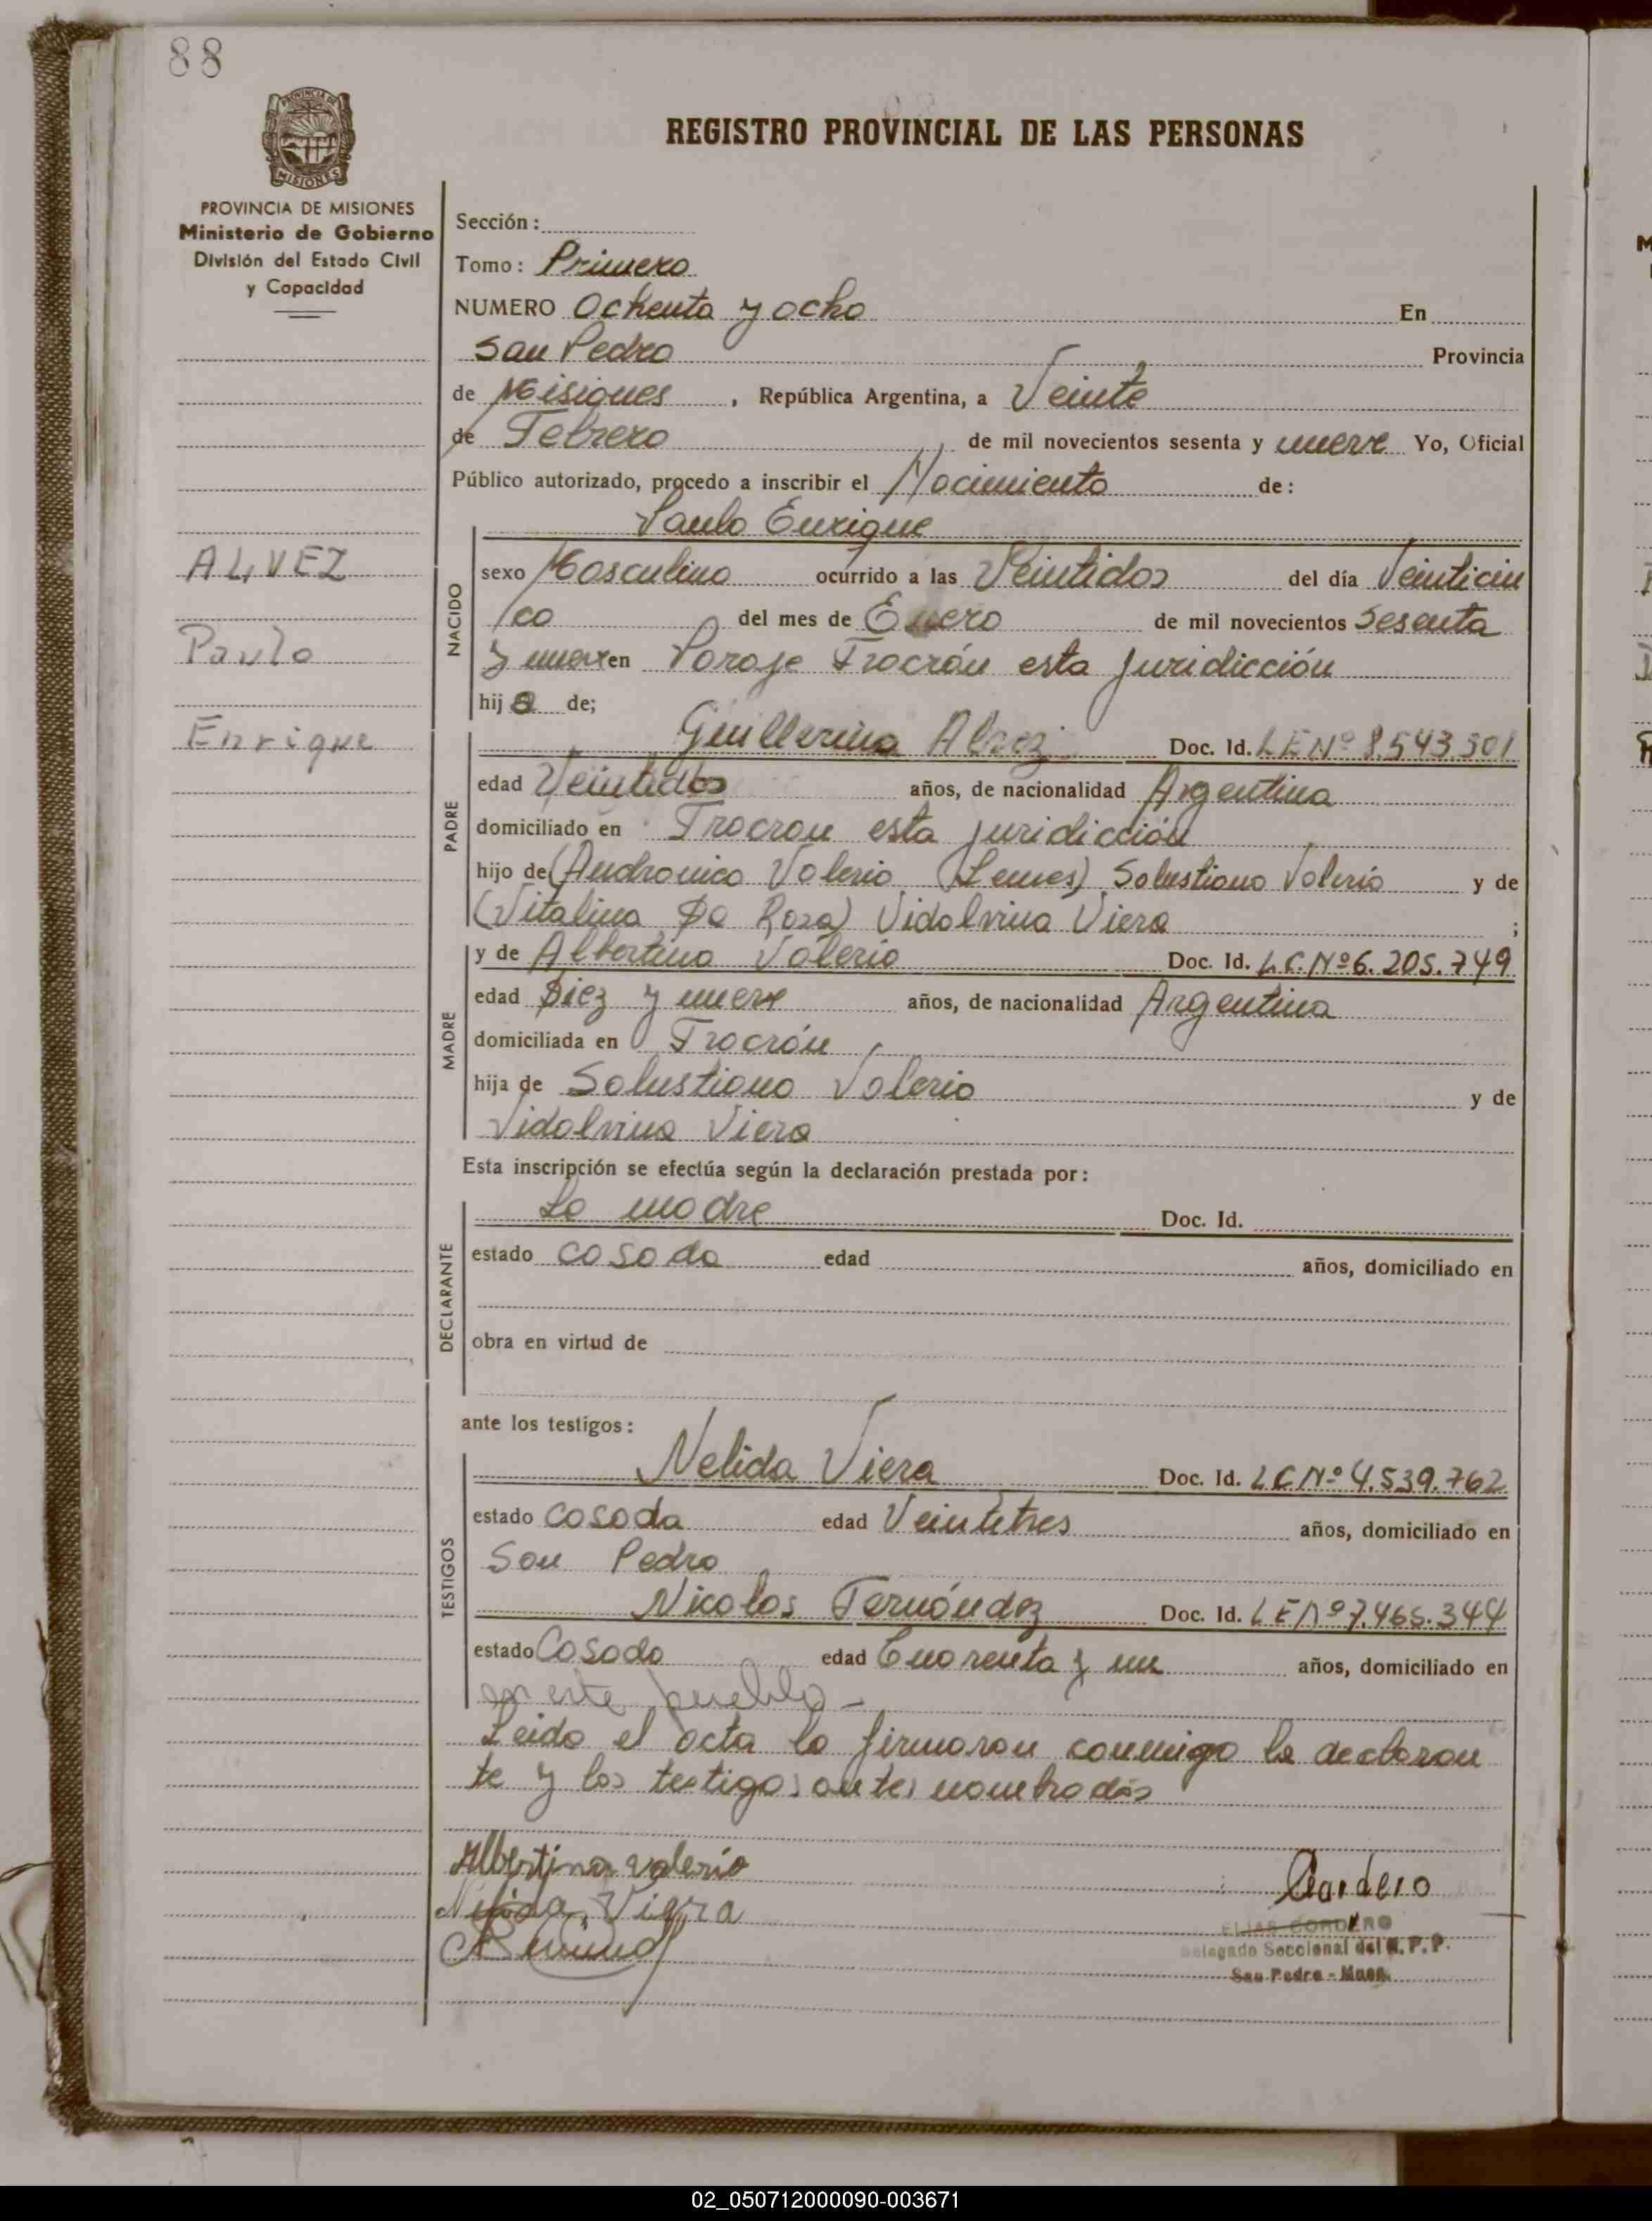 88
PROVINCIA DE
MISIONES
PROVINCIA DE MISIONES
Ministerio de Gobierno
División del Estado Civil
y Capacidad
REGISTRO PROVINCIAL DE LAS PERSONAS
Sección:
Tomo: Primero
NUMERO Ochenta y ocho En
San Pedro Provincia
de Misiones, República Argentina, a Veinte
de Febrero de mil novecientos sesenta y nueve Yo, Oficial
Público autorizado, procedo a inscribir el Nacimiento de:
Paulo Enrique
ALVEZ
Paulo
Enrique
NACIDO
sexo Masculino ocurrido a las Veintidos del día Veinticin
co del mes de Enero de mil novecientos Sesenta
y nueve en Paraje Tracrán esta Juridicción
hijo de;
PADRE
Guillermo Alvez Doc. Id. LE Nº 8.543.501
edad Veintidos años, de nacionalidad Argentina
domiciliado en Tracran esta juridicción
hijo de (Andronico Valerio Lemes) Salustiano Valerio y de
(Vitalina Da Roza) Vidalvina Viera ;
MADRE
y de Albertina Valerio Doc. Id. L.C. Nº 6.205.749
edad Diez y nueve años, de nacionalidad Argentina
domiciliada en Tracrán
hija de Salustiano Valerio y de
Vidalvina Viera
Esta inscripción se efectúa según la declaración prestada por:
DECLARANTE
La madre Doc. Id.
estado casada edad años, domiciliado en
obra en virtud de
ante los testigos:
TESTIGOS
Nelida Viera Doc. Id. L.C. Nº 4.539.762
estado casada edad Veintitres años, domiciliado en
San Pedro
Nicolas Fernández Doc. Id. LE Nº 7.465.344
estado Casado edad Cuarenta y un años, domiciliado en
en este pueblo -
Leida el acta la firmaron conmigo la declaran
te y los testigos antes nombrados
Albertina Valerio
Viera
Cordero
ELIAS CORDERO
Delegado Seccional del R.P.P.
San Pedro - Mnes.
02_050712000090-003671